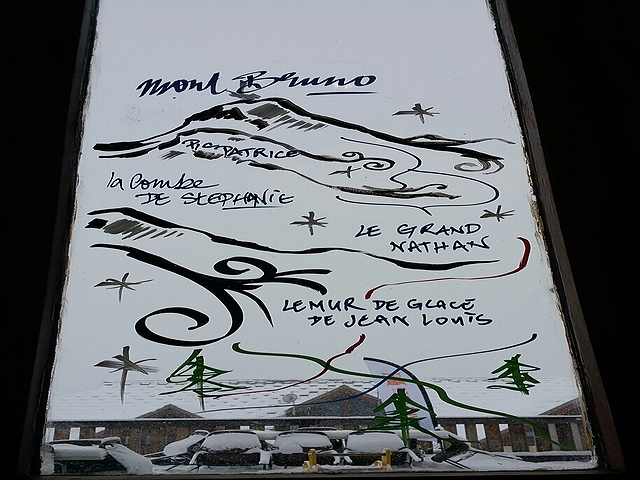 Mont Bruno
Pic PATRICE
la Combe
DE STEPHANIE
LE GRAND
NATHAN
LE MUR DE GLACE
DE JEAN LOUIS